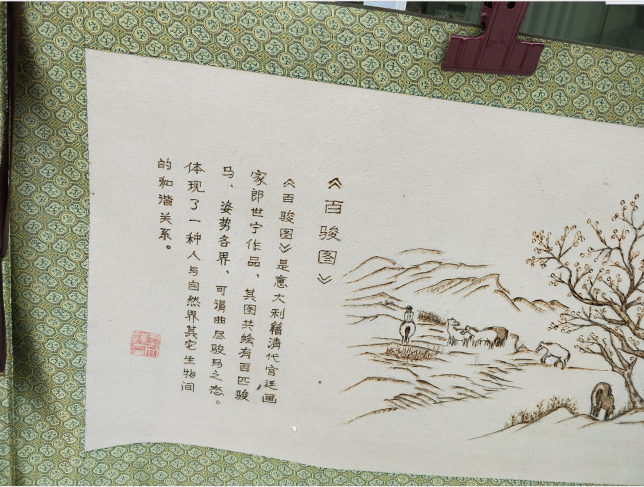 《百骏图》
《百骏图》是意大利籍清代宫廷画
家郎世宁作品，其图共绘有百匹骏
马、姿势各界，可谓曲尽骏马之态。
体现了一种人与自然界其它生物间
的和谐关系。